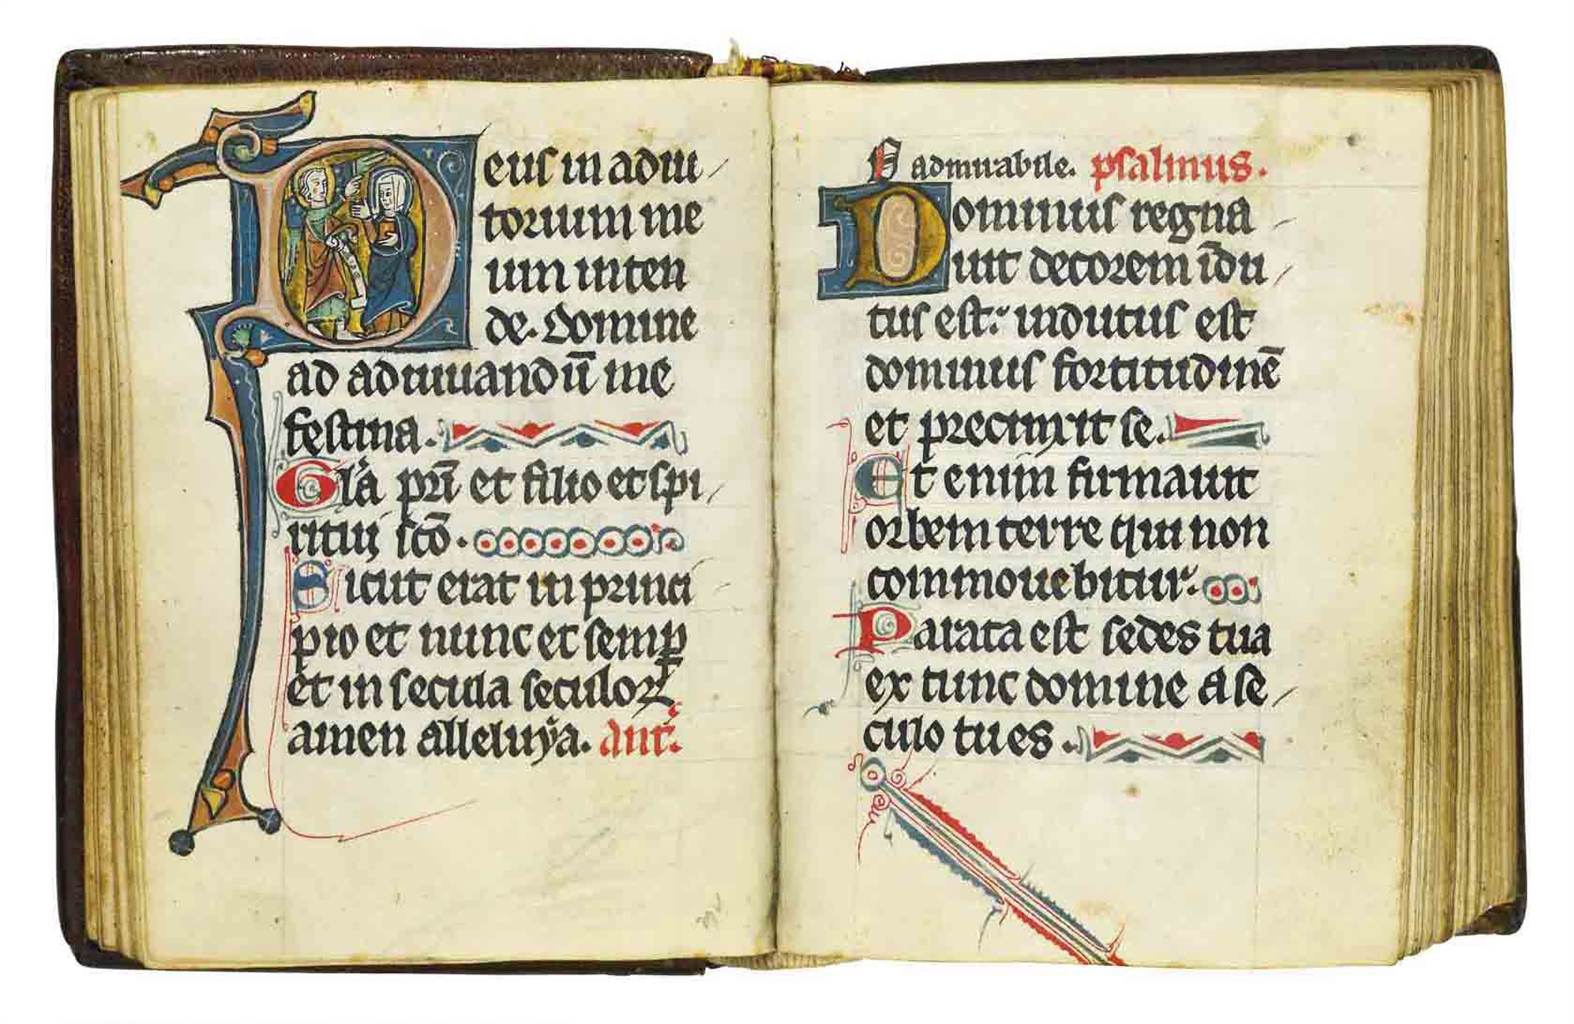 Deus in adiu
torium me
um inten
de. Domine
ad adiuuandū me
festina.
Gła pri et filio et spi
ritui sco.
Sicut erat in princi
pio et nunc et semp
et in secula seculoꝝ
amen alleluya. ant.
O admirabile. psalmus.
Dominus regna
uit decorem īdu
tus est: indutus est
dominus fortitudinē
et precinxit se.
Et enim firmauit
orbem terre qui non
commouebitur.
Parata est sedes tua
ex tunc domine a se
culo tu es.